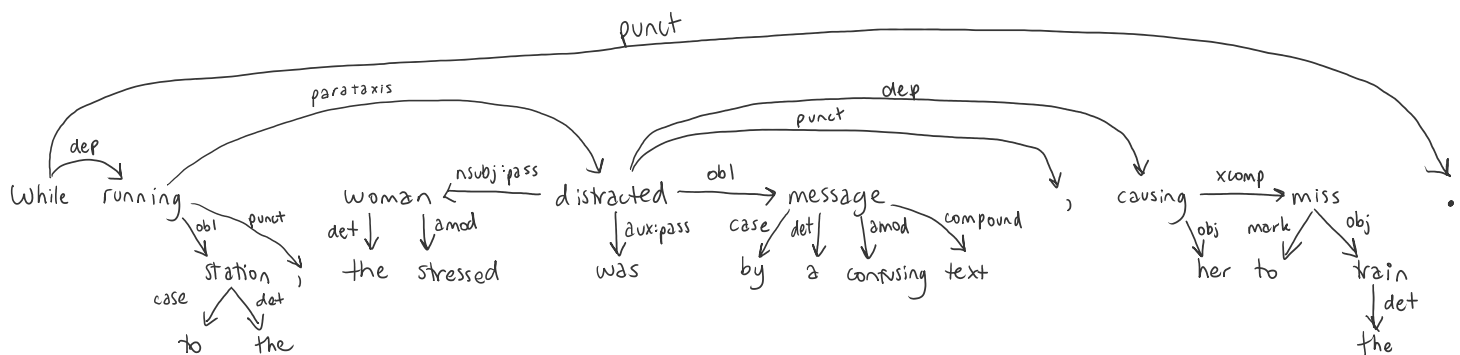 punct
parataxis
dep
punct
dep
nsubj:pass
obl
xcomp
While running woman distracted message , causing miss .
obl punct det amod aux:pass case det amod compound obj mark obj
station , the stressed was by a confusing text her to train
case det det
to the the